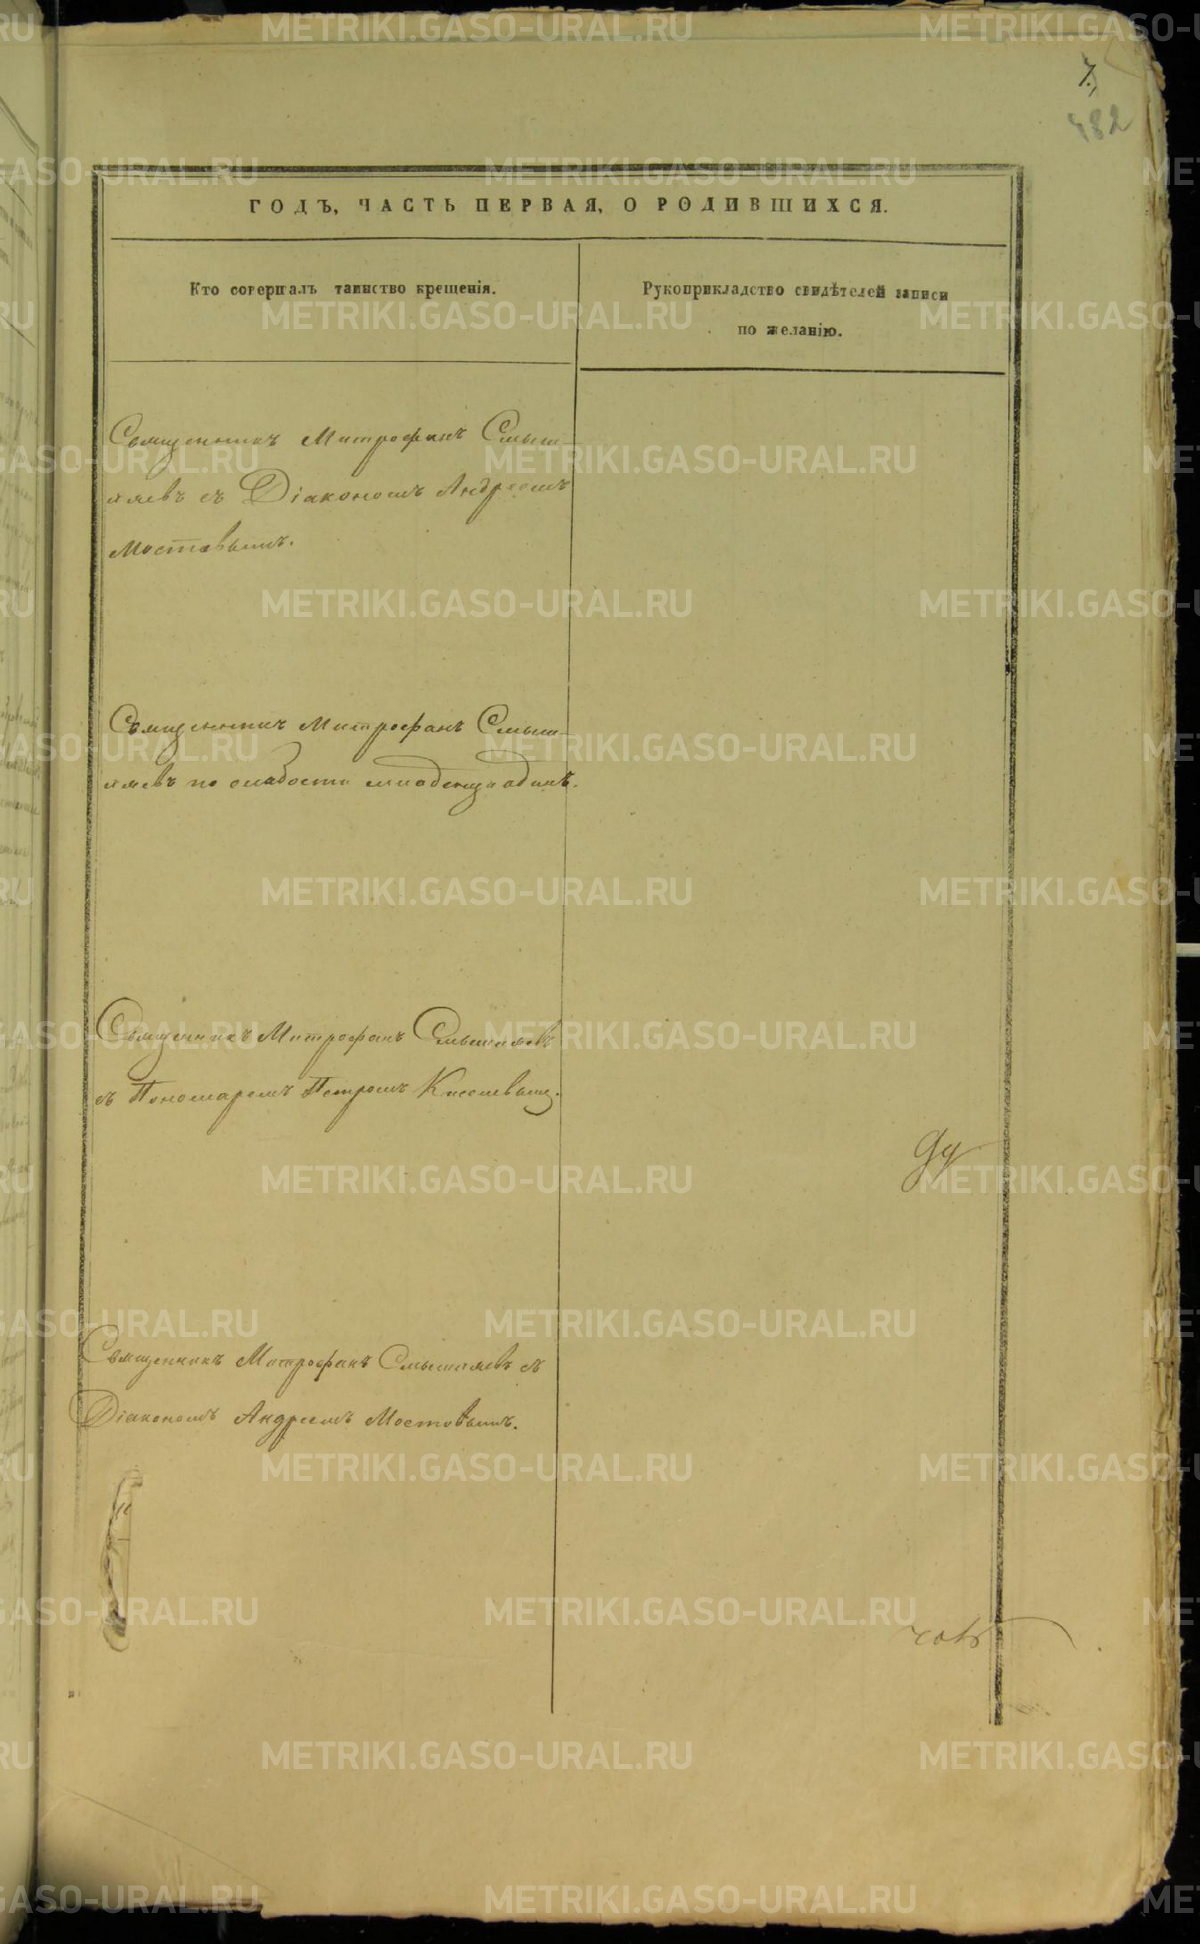 7.
482
ГОДЪ, ЧАСТЬ ПЕРВАЯ, О РОДИВШИХСЯ.
Кто совершалъ таинство крещенія.
Рукоприкладство свидѣтелей записи
по желанію.
Священникъ Митрофанъ Смыш-
ляевъ съ Діакономъ Андреемъ
Мостовымъ.
Священникъ Митрофанъ Смыш-
ляевъ по слабости младенца одинъ.
Священникъ Митрофанъ Смышляевъ
съ Пономаремъ Петромъ Киселевымъ.
Священникъ Митрофанъ Смышляевъ съ
Діакономъ Андреемъ Мостовымъ.
METRIKI.GASO-URAL.RU